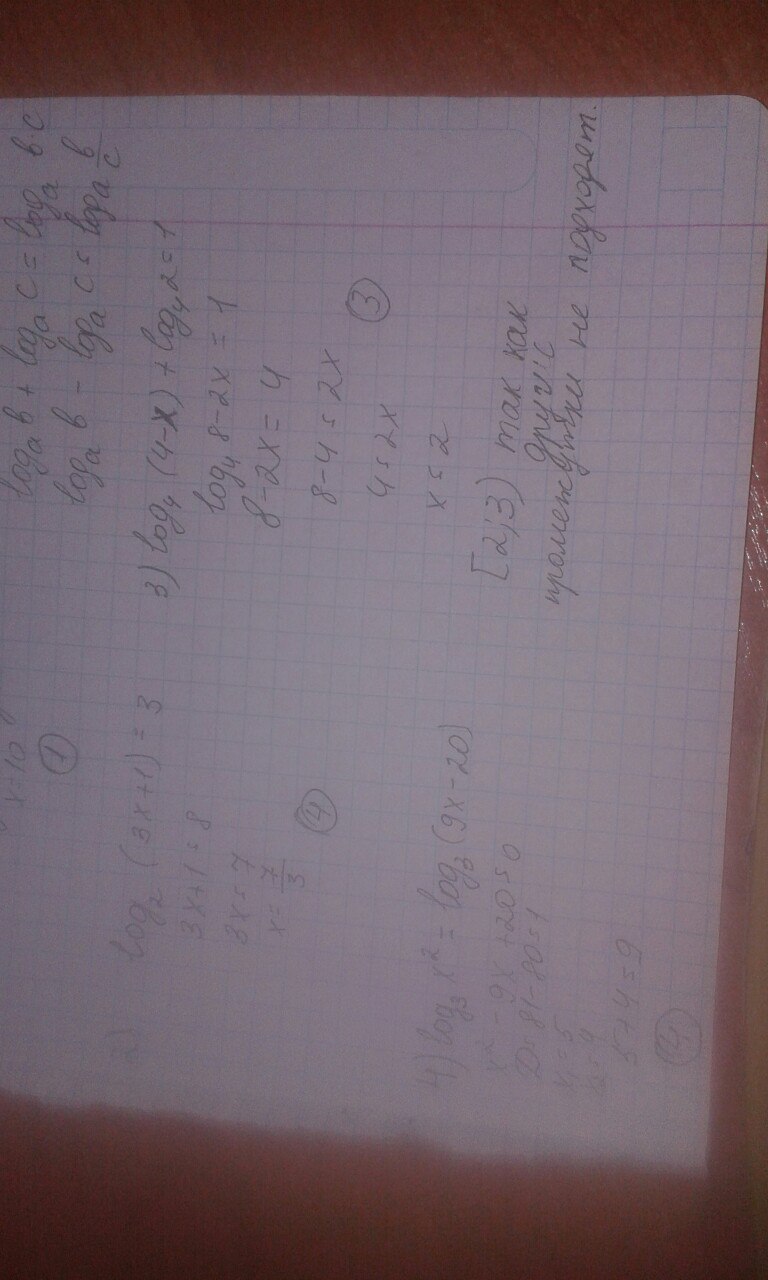 x=10
①
log_a b + log_a c = log_a bc
log_a b - log_a c = log_a b/c
2) log₂ (3x+1) = 3
3x+1=8
3x=7
x=7/3
④
3) log₄ (4-x) + log₄ 2=1
log₄ 8-2x = 1
8-2x=4
8-4=2x
4=2x
x=2
③
[2;3) так как
другие
промежутки не подходят.
4) log₃ x² = log₃ (9x-20)
x² - 9x +20=0
D=81-80=1
x₁=5
x₂=4
5+4=9
④